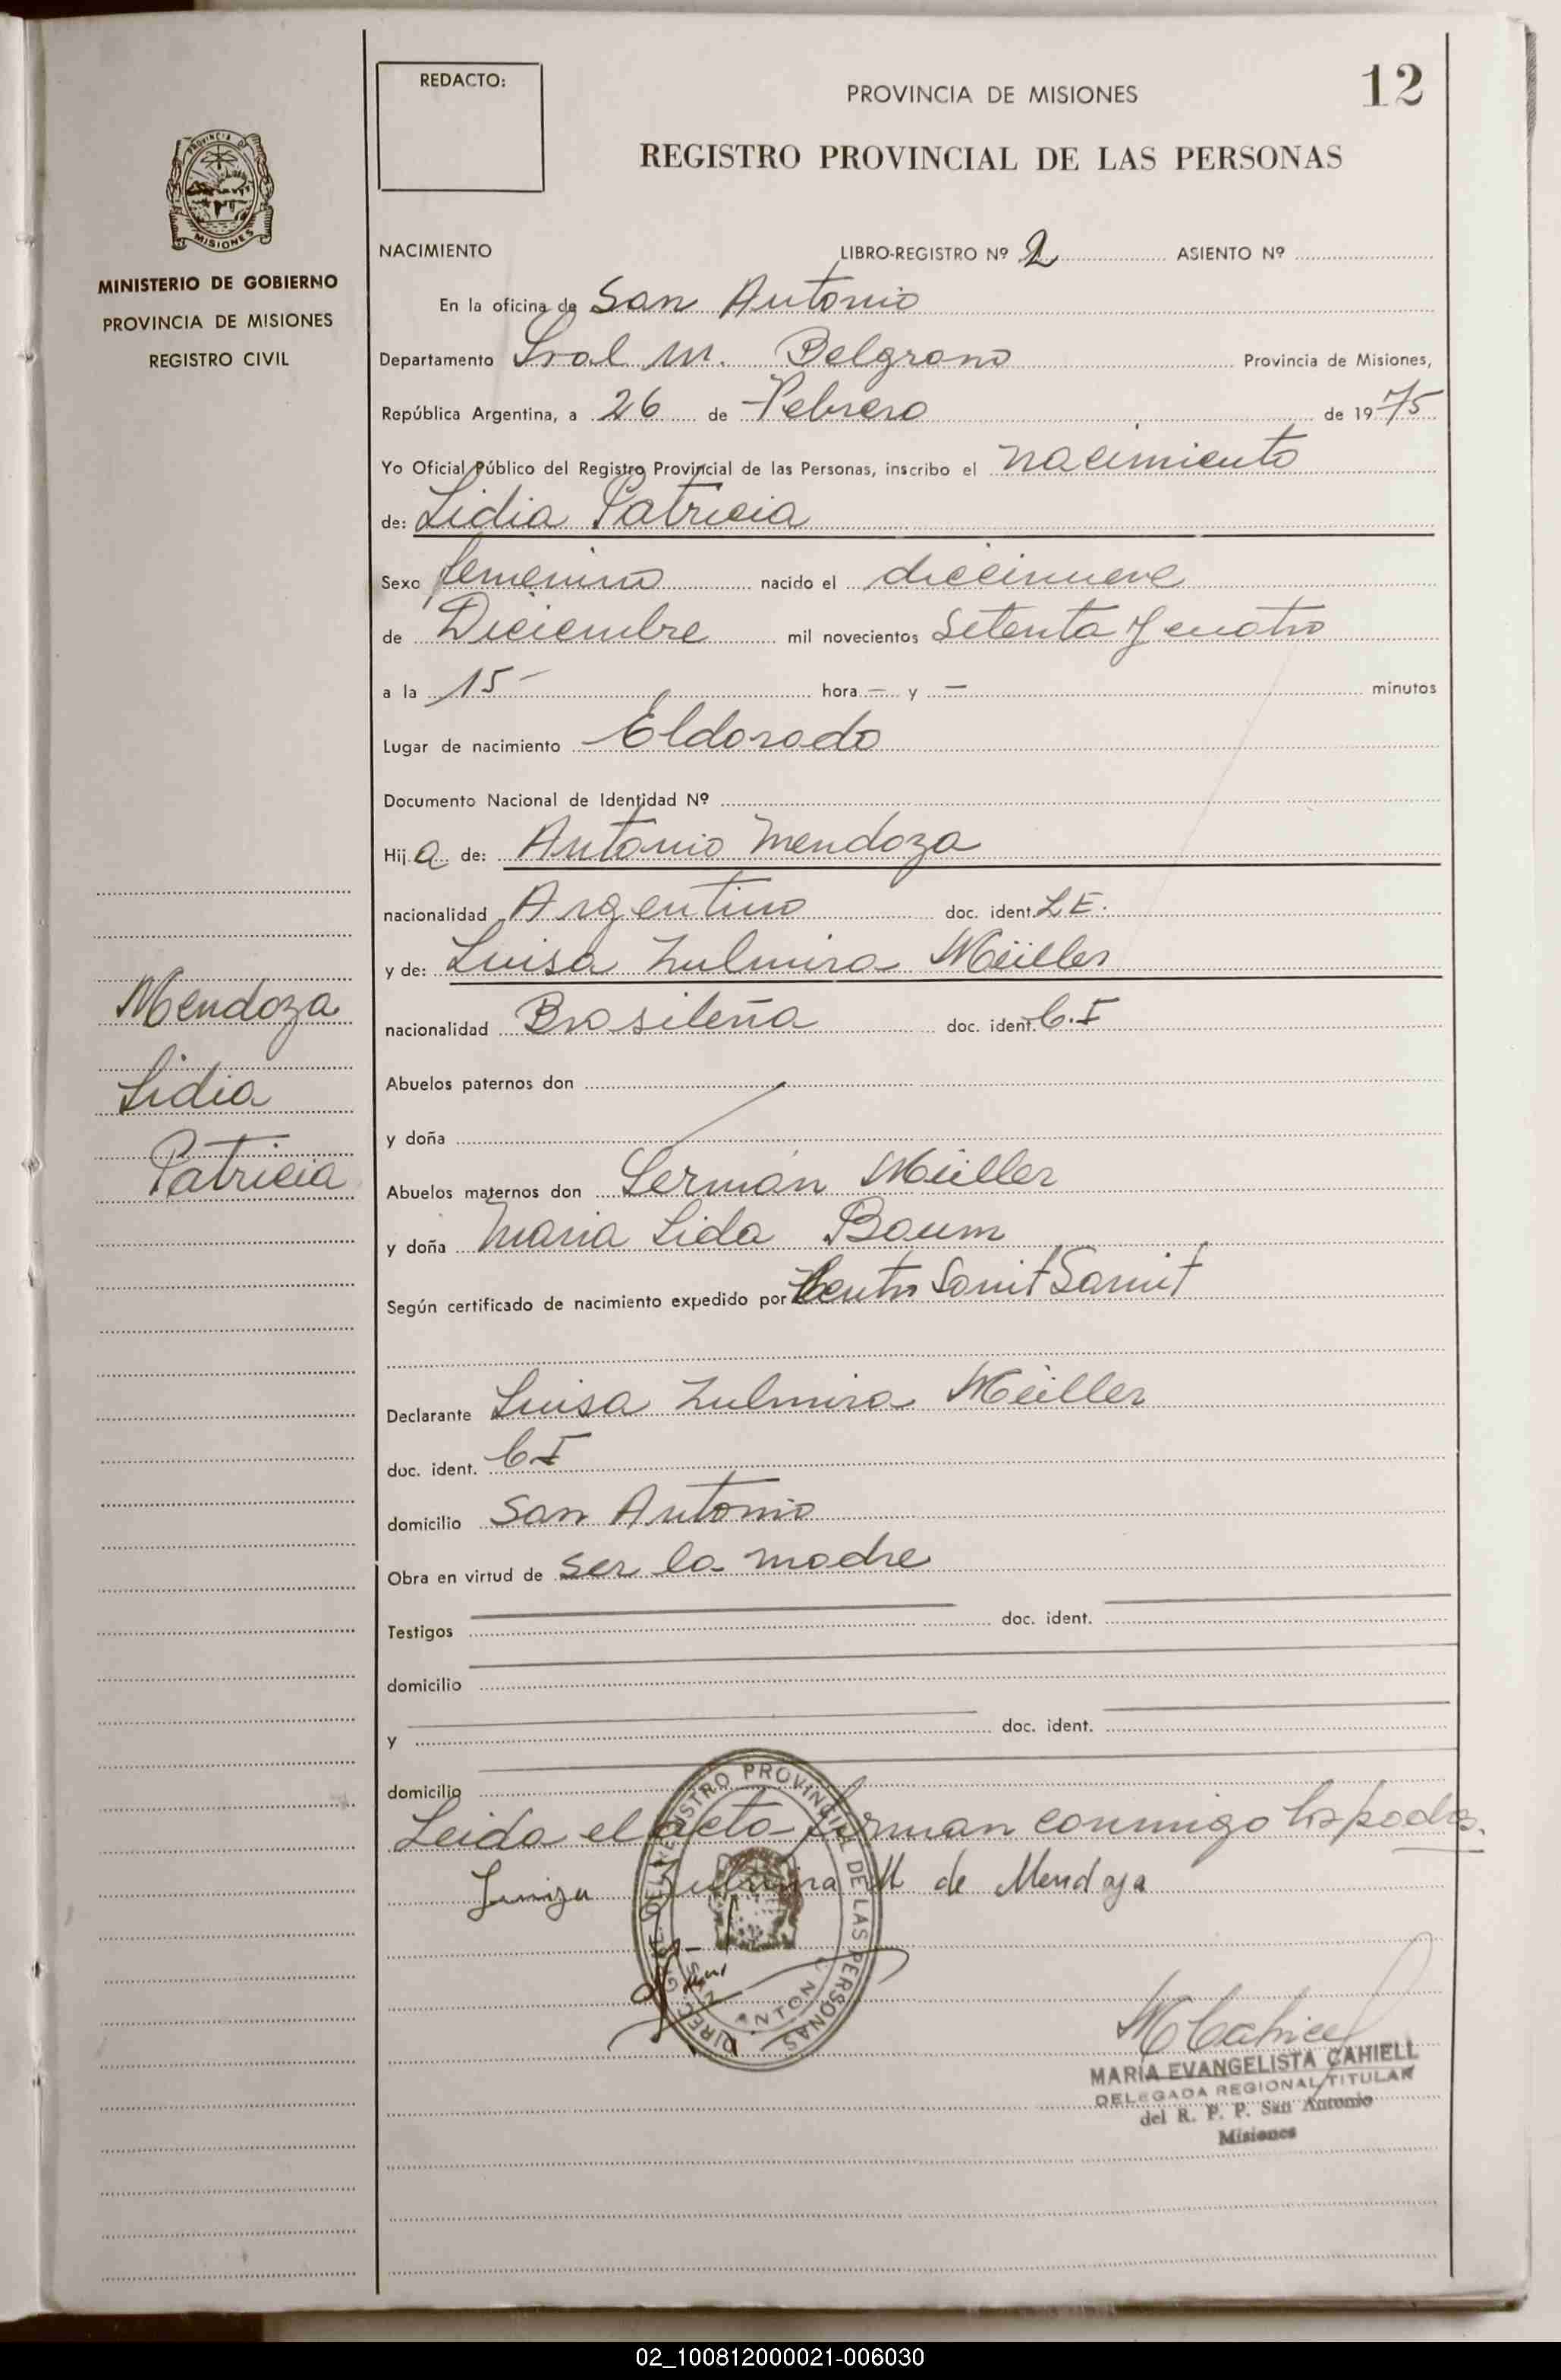 12
REDACTO:
PROVINCIA DE MISIONES
REGISTRO PROVINCIAL DE LAS PERSONAS
PROVINCIA DE
MISIONES
MINISTERIO DE GOBIERNO
PROVINCIA DE MISIONES
REGISTRO CIVIL
NACIMIENTO LIBRO-REGISTRO Nº 2 ASIENTO Nº
En la oficina de San Antonio
Departamento Gral M. Belgrano Provincia de Misiones,
República Argentina, a 26 de Febrero de 1975
Yo Oficial Público del Registro Provincial de las Personas, inscribo el nacimiento
de: Lidia Patricia
Sexo femenino nacido el diecinueve
de Diciembre mil novecientos Setenta y cuatro
a la 15 - hora - y - minutos
Lugar de nacimiento Eldorado
Documento Nacional de Identidad Nº
Hija de: Antonio Mendoza
nacionalidad Argentino doc. ident. L.E.
y de: Luisa Zulmira Müller
nacionalidad Brasileña doc. ident. C.I
Abuelos paternos don
y doña
Abuelos maternos don Germán Müller
y doña Maria Lida Baum
Según certificado de nacimiento expedido por Centro Sanit Sanit
Declarante Luisa Zulmira Müller
doc. ident. C I
domicilio San Antonio
Obra en virtud de ser la madre
Testigos doc. ident.
domicilio
y doc. ident.
domicilio
Leida el acta firman conmigo los padres.
Zulmira M de Mendoza
Mendoza
Lidia
Patricia
REGISTRO PROVINCIAL DE LAS PERSONAS
SAN ANTONIO
MARÍA EVANGELISTA CAHIELL
DELEGADA REGIONAL TITULAR
del R. P. P. San Antonio
Misiones
02_100812000021-006030